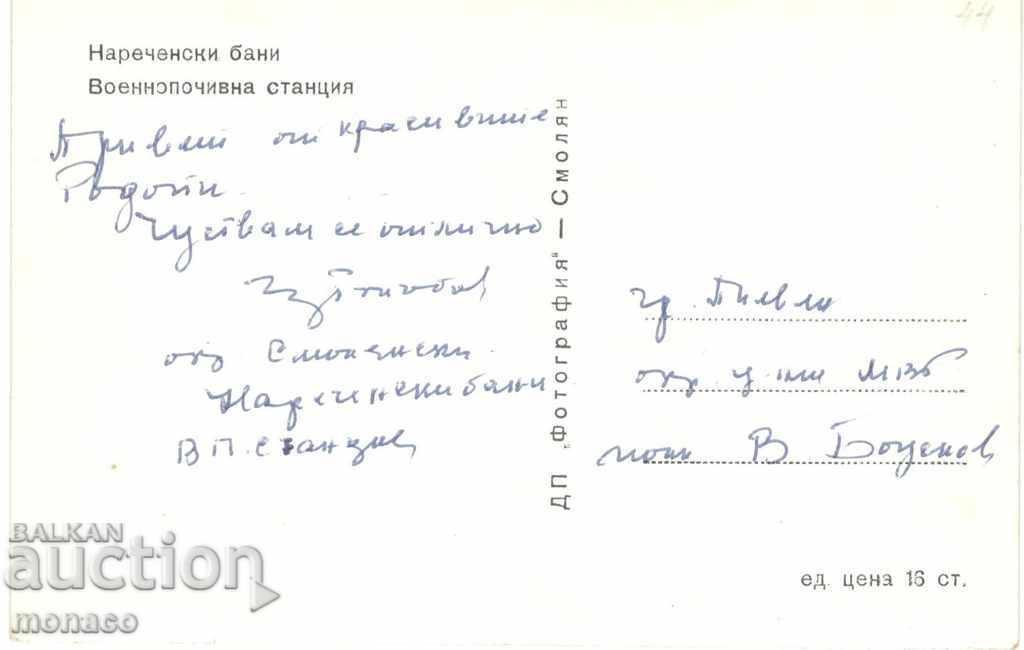 44
Нареченски бани
Военнопочивна станция
Привет от красивите
Родопи.
Чуствам се отлично
окр Смолянски
Нареченски бани
В П. станция
ДП „Фотография“ — Смолян
гр. Плевен
окр
В Боценов
ед. цена 16 ст.
BALKAN
auction
monaco